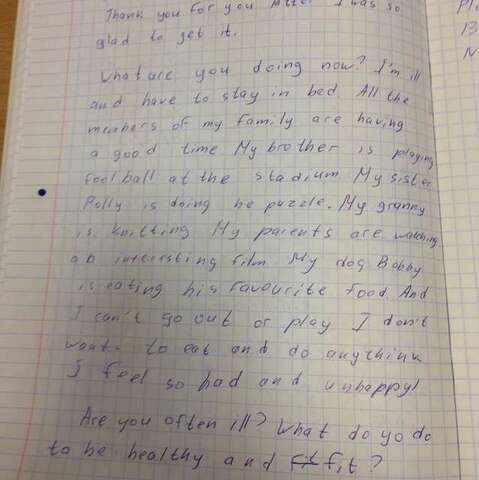 Thank you for you letter I was so
glad to get it.
What are you doing now? I'm ill
and have to stay in bed All the
members of my family are having
a good time My brother is playing
foolball at the stadium My sister
Polly is doing he puzzle. My granny
is knitting My parents are watching
an interesting film My dog Bobby
is eating his favourite food And
I can't go out or play I don't
want to eat and do anythink
I feel so bad and unhappy!
Are you often ill? What do yo do
to be healthy and fit?